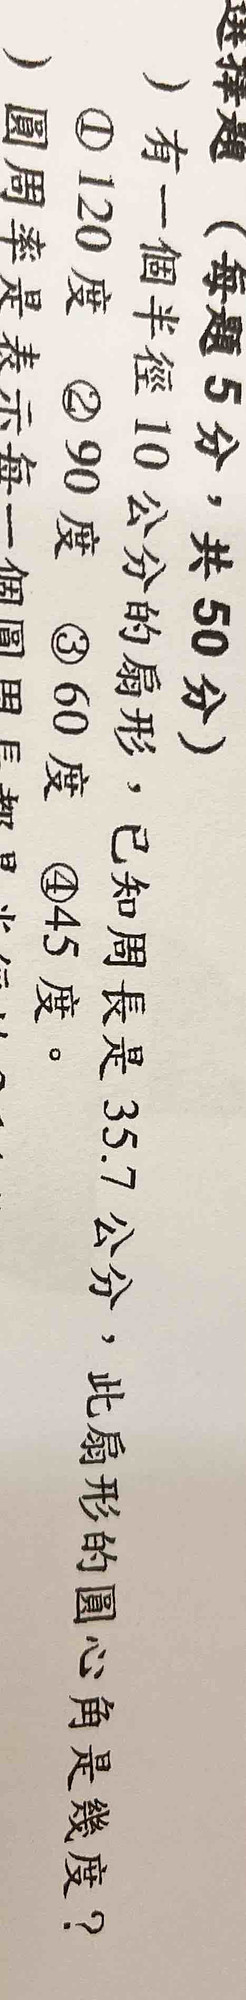 選擇題 （每題5分，共50分）
）有一個半徑10公分的扇形，已知周長是35.7公分，此扇形的圓心角是幾度？
①120度 ②90度 ③60度 ④45度。
）圓周率是表示每一個圓周長都是